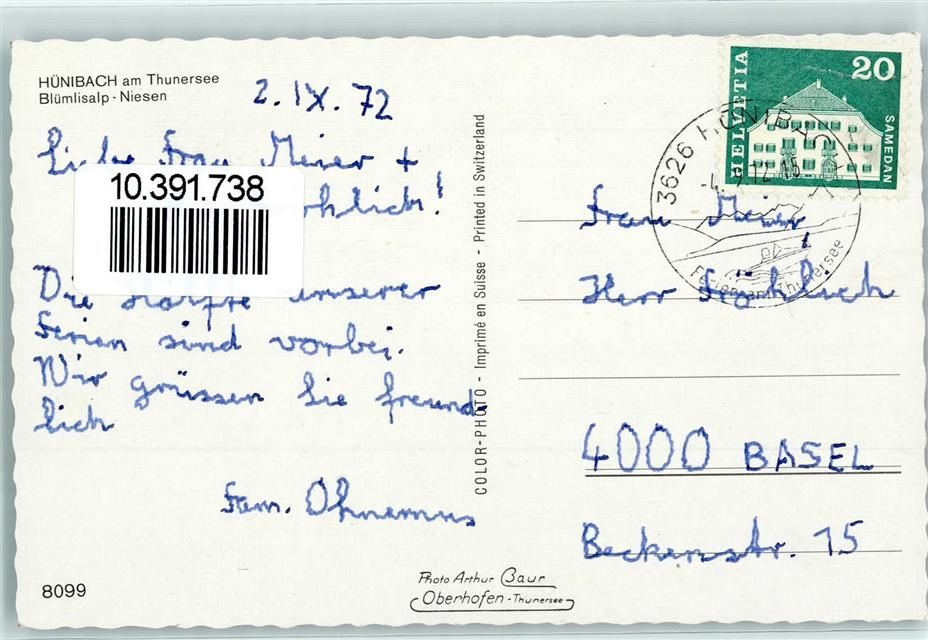 HÜNIBACH am Thunersee
Blümlisalp - Niesen
2. IX. 72
Liebe Frau Meier +
10.391.738
Die Hälfte unserer
Ferien sind vorbei.
Wir grüssen Sie freund
lich
Fam. Ohnemus
8099
COLOR-PHOTO - Imprimé en Suisse - Printed in Switzerland
Photo Arthur Baur
Oberhofen - Thunersee
HELVETIA
20
SAMEDAN
3626 HÜNIBACH
Ferien am Thunersee
Frau Meier
Herr Fröhlich
4000 BASEL
Beckenstr. 15